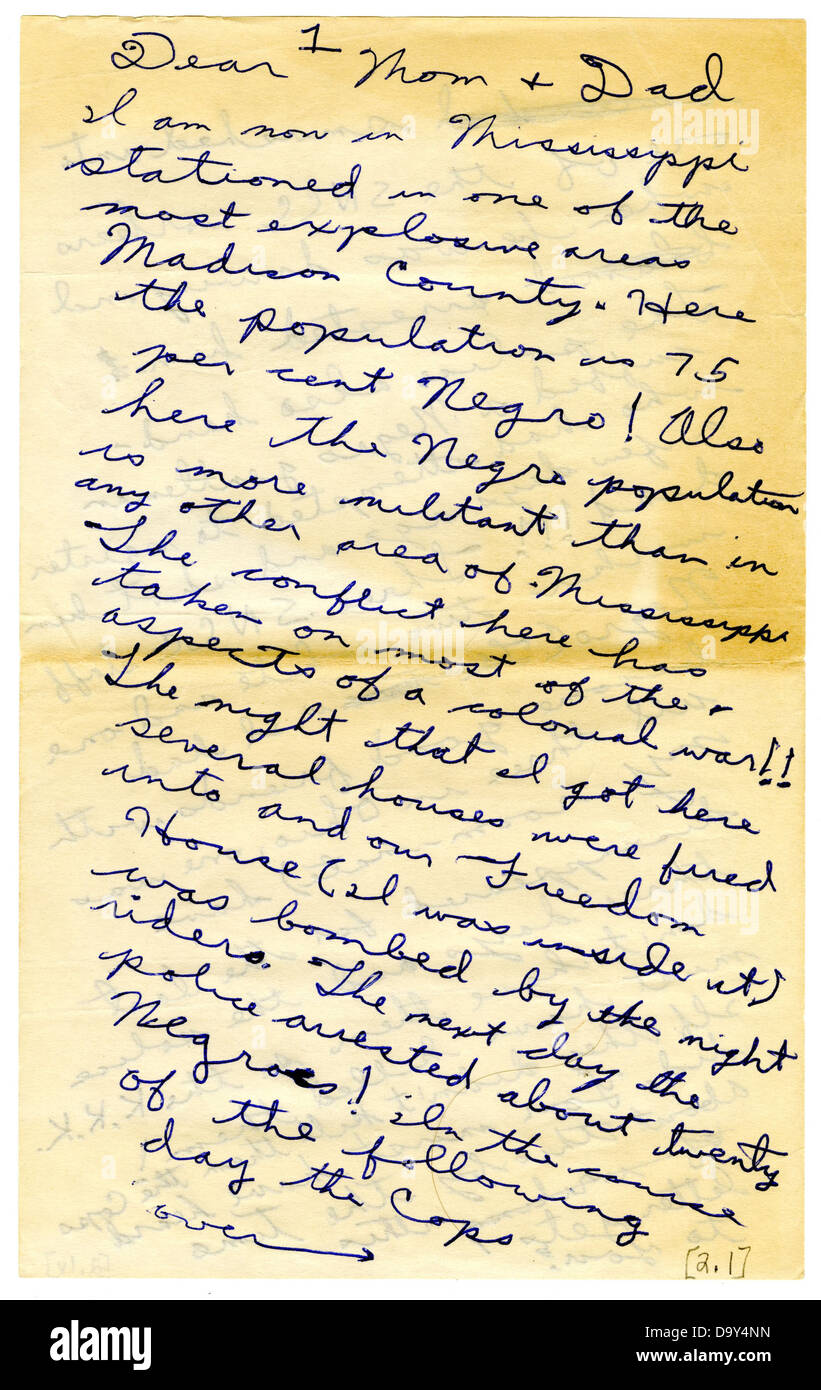 1
Dear Mom + Dad
I am now in Mississippi
stationed in one of the
most explosive areas
Madison County. Here
the population is 75
per cent Negro! Also
here the Negro population
is more militant than in
any other area of Mississippi
The conflict here has
taken on most of the
aspects of a colonial war!!
The night that I got here
several houses were fired
into and our Freedom
House (I was inside it)
was bombed by the night
riders. The next day the
police arrested about twenty
Negroes! In the course
of the following
day the Cops
over →
[2.1]
alamy
alamy
alamy
alamy
Image ID: D9Y4NN
www.alamy.com